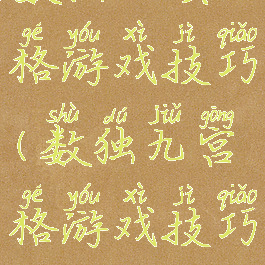 gé yóu xì jì qiǎo
格游戏技巧
shù dú jiǔ gōng
(数独九宫
gé yóu xì jì qiǎo
格游戏技巧